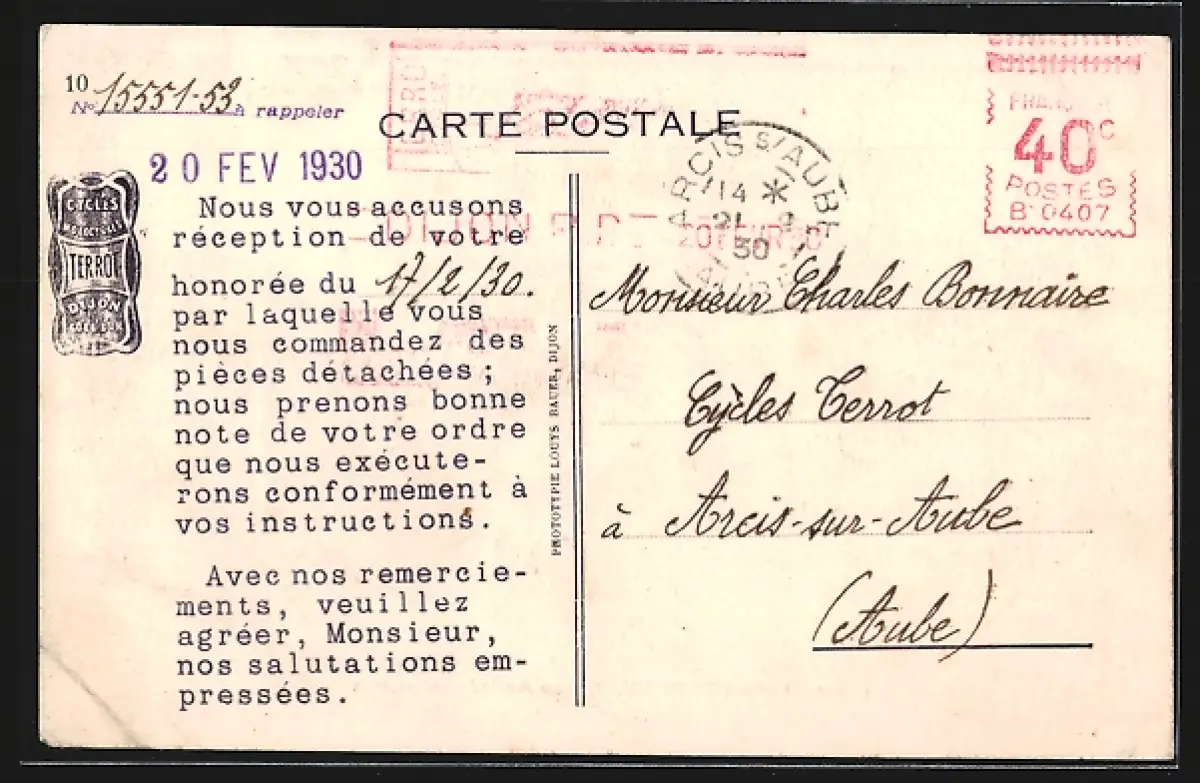 10
N° 15551-53 à rappeler
CARTE POSTALE
20 FEV 1930
CYCLES
TERROT
DIJON
Nous vous accusons
réception de votre
honorée du 17/2/30.
par laquelle vous
nous commandez des
pièces détachées ;
nous prenons bonne
note de votre ordre
que nous exécute-
rons conformément à
vos instructions.
Avec nos remercie-
ments, veuillez
agréer, Monsieur,
nos salutations em-
pressées.
PHOTOTYPIE LOUYS BAUER, DIJON
DIJON
ARCIS s/AUBE
14 *
21 2
30
40c
POSTES
B 0407
Monsieur Charles Bonnaire
Cycles Terrot
à Arcis-sur-Aube
(Aube)